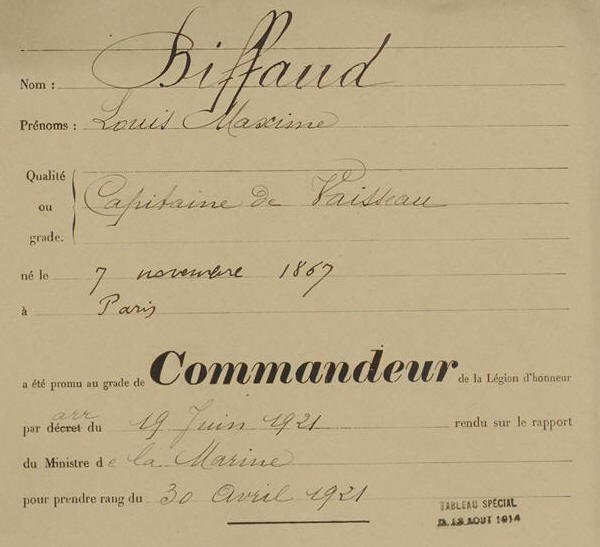 Nom : Biffaud
Prénoms : Louis Maxime
Qualité
ou Capitaine de Vaisseau
grade.
né le 7 novembre 1867
à Paris
a été promu au grade de Commandeur de la Légion d'honneur
arr
par décret du 19 Juin 1921 rendu sur le rapport
du Ministre de la Marine
pour prendre rang du 30 avril 1921
TABLEAU SPÉCIAL
D. 13 AOUT 1914